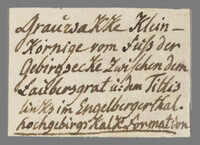 Grauwakke Klein-
Körnige vom Fuß der
Gebirgsecke zwischen dem
Lailbersgrat u: dem Titlis
links im Engelbergerthal.
hochgebirgs Kalk Formation